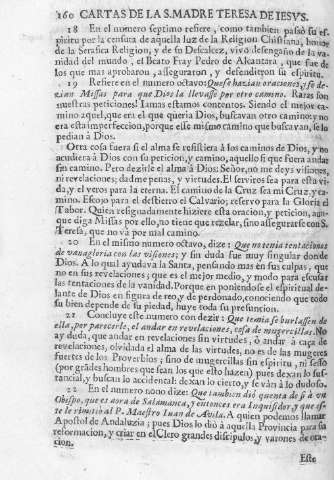 160 CARTAS DE LA S. MADRE TERESA DE IESVS.
18 En el numero septimo refiere, como tambien passò su es-
piritu por la censura de aquella luz de la Religion Chistiana, honor
de la Serafica Religion, y de su Descalcez, vivo desengaño de la va-
nidad del mundo, el Beato Fray Pedro de Alcantara, que fue de
los que mas aprobaron, asseguraron, y defendieron su espiritu.
19 Refiere en el numero octavo: Que se hazian oraciones, y se de-
zian Missas para que Dios la llevasse por otro camino. Raras son
nuestras peticiones! Iamas estamos contentos. Siendo el mejor ca-
mino aquel, que era el que queria Dios, buscavan otro camino: y no
era esta imperfeccion, porque esse mismo camino que buscavan, se lo
pedian à Dios.
Otra cosa fuera si el alma se resistiera à los caminos de Dios, y no
acudiera à Dios con su peticion, y camino, aquello si que fuera andar
sin camino. Pero dezirle el alma à Dios: Señor, no me deys visiones,
ni revelaciones; dadme penas, y virtudes. El serviros sea para esta vi-
da, y el veros para la eterna. El camino de la Cruz sea mi Cruz, y ca-
mino. Escojo para el destierro el Calvario; reservo para la Gloria el
Tabor. Quien resignadamente hiziere esta oracion, y peticion, aun-
que diga Missas por ello, no tiene que rezelar, sino assegurarse con S.
Teresa, que no và por mal camino.
20 En el mismo numero octavo, dize: Que no tenia tentaciones
de vanagloria con las visiones; y sin duda fue muy singular don de
Dios. A lo qual ayudava la Santa, pensando mas en sus culpas, que
no en sus revelaciones; que es el mejor medio, y modo para escusar
las tentaciones de la vanidad. Porque en poniendose el espiritual de-
lante de Dios en figura de reo, y de perdonado, conociendo que todo
su bien depende de su piedad, huye toda su presuncion.
21 Concluye este numero con dezir: Que temia se burlassen de
ella, por parecerle, el andar en revelaciones, cosa de mugercillas. No
ay duda, que andar en revelaciones sin virtudes, ò andar à caça de
revelaciones, olvidada el alma de las virtudes, no es de las mugeres
fuertes de los Proverbios; sino de mugercillas sin espiritu, ni sesso
(por grãdes hombres que sean los que esto hazen) pues dexan lo sus-
tancial, y buscan lo accidental: dexan lo cierto, y se vàn à lo dudoso.
22 En el numero nono dize: Que tambien diò quenta de si à un
Obispo, que es aora de Salamanca, y entonces era Inquisidor, y que es-
te le remitiò al P. Maestro Iuan de Avila. A quien pudieron llamar
Apostol de Andaluzia; pues Dios lo diò à aquella Provincia para su
reformacion, y criar en el Clero grandes discipulos, y varones de ora-
cion.
Este